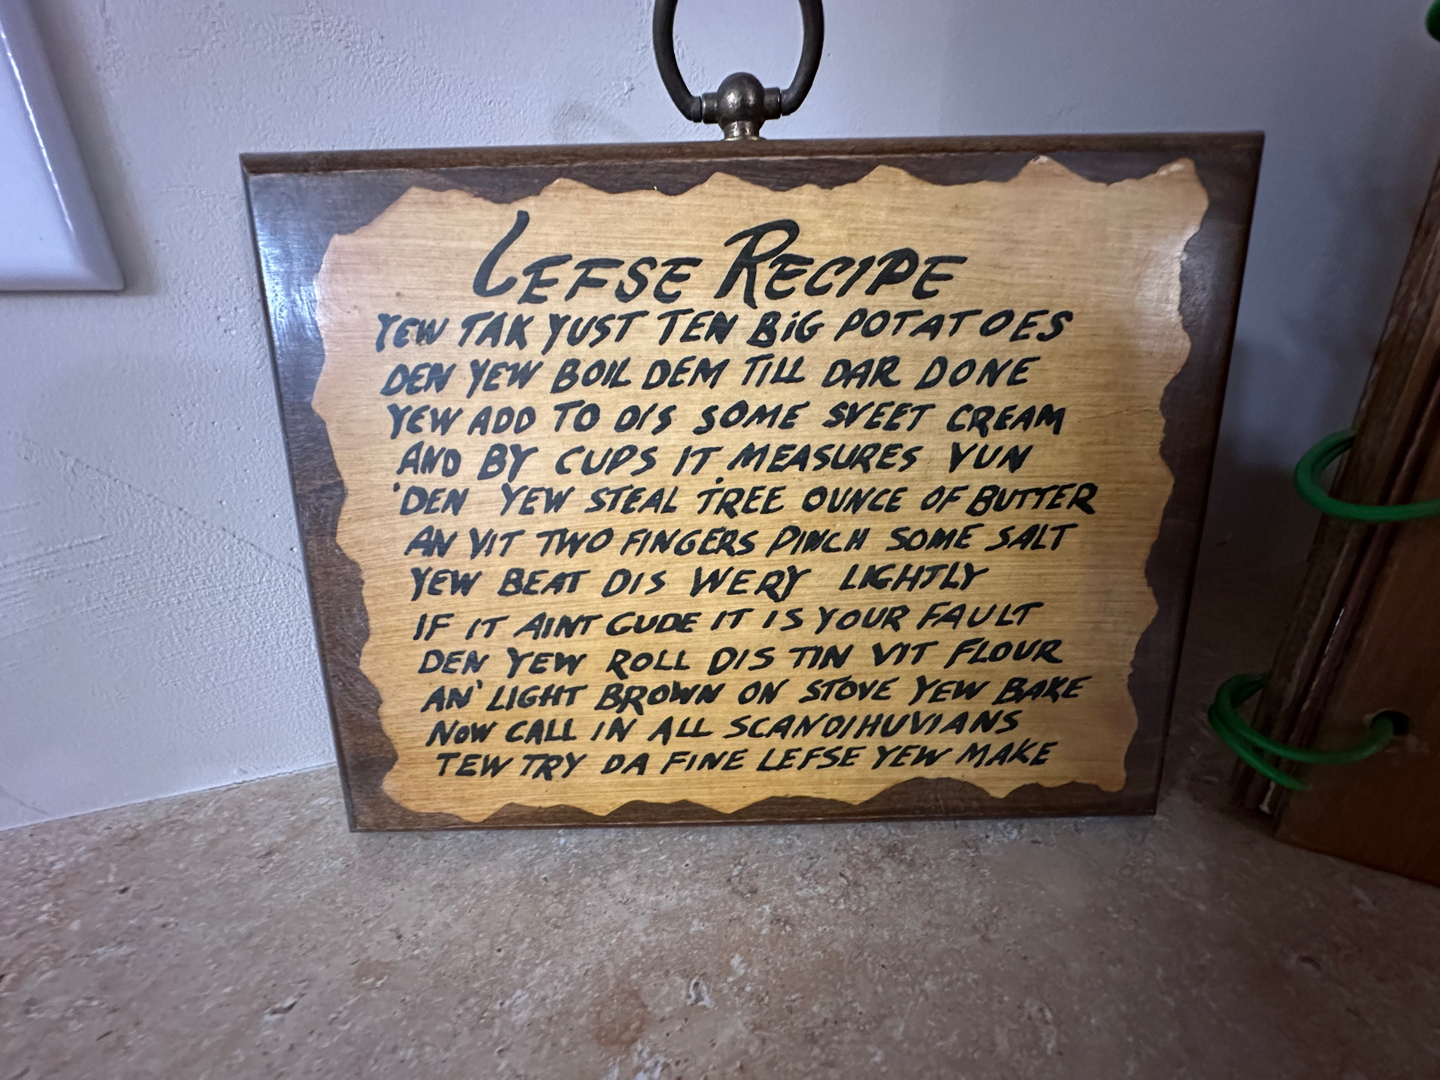 LEFSE RECIPE
YEW TAK YUST TEN BiG POTATOES
DEN YEW BOIL DEM TILL DAR DONE
YEW ADD TO DIS SOME SVEET CREAM
AND BY CUPS IT MEASURES YUN
'DEN YEW STEAL TREE OUNCE OF BUTTER
AN VIT TWO FINGERS PINCH SOME SALT
YEW BEAT DIS WERY LIGHTLY
IF IT AINT GUDE IT IS YOUR FAULT
DEN YEW ROLL DIS TIN VIT FLOUR
AN' LIGHT BROWN ON STOVE YEW BAKE
NOW CALL IN ALL SCANDIHUVIANS
TEW TRY DA FINE LEFSE YEW MAKE